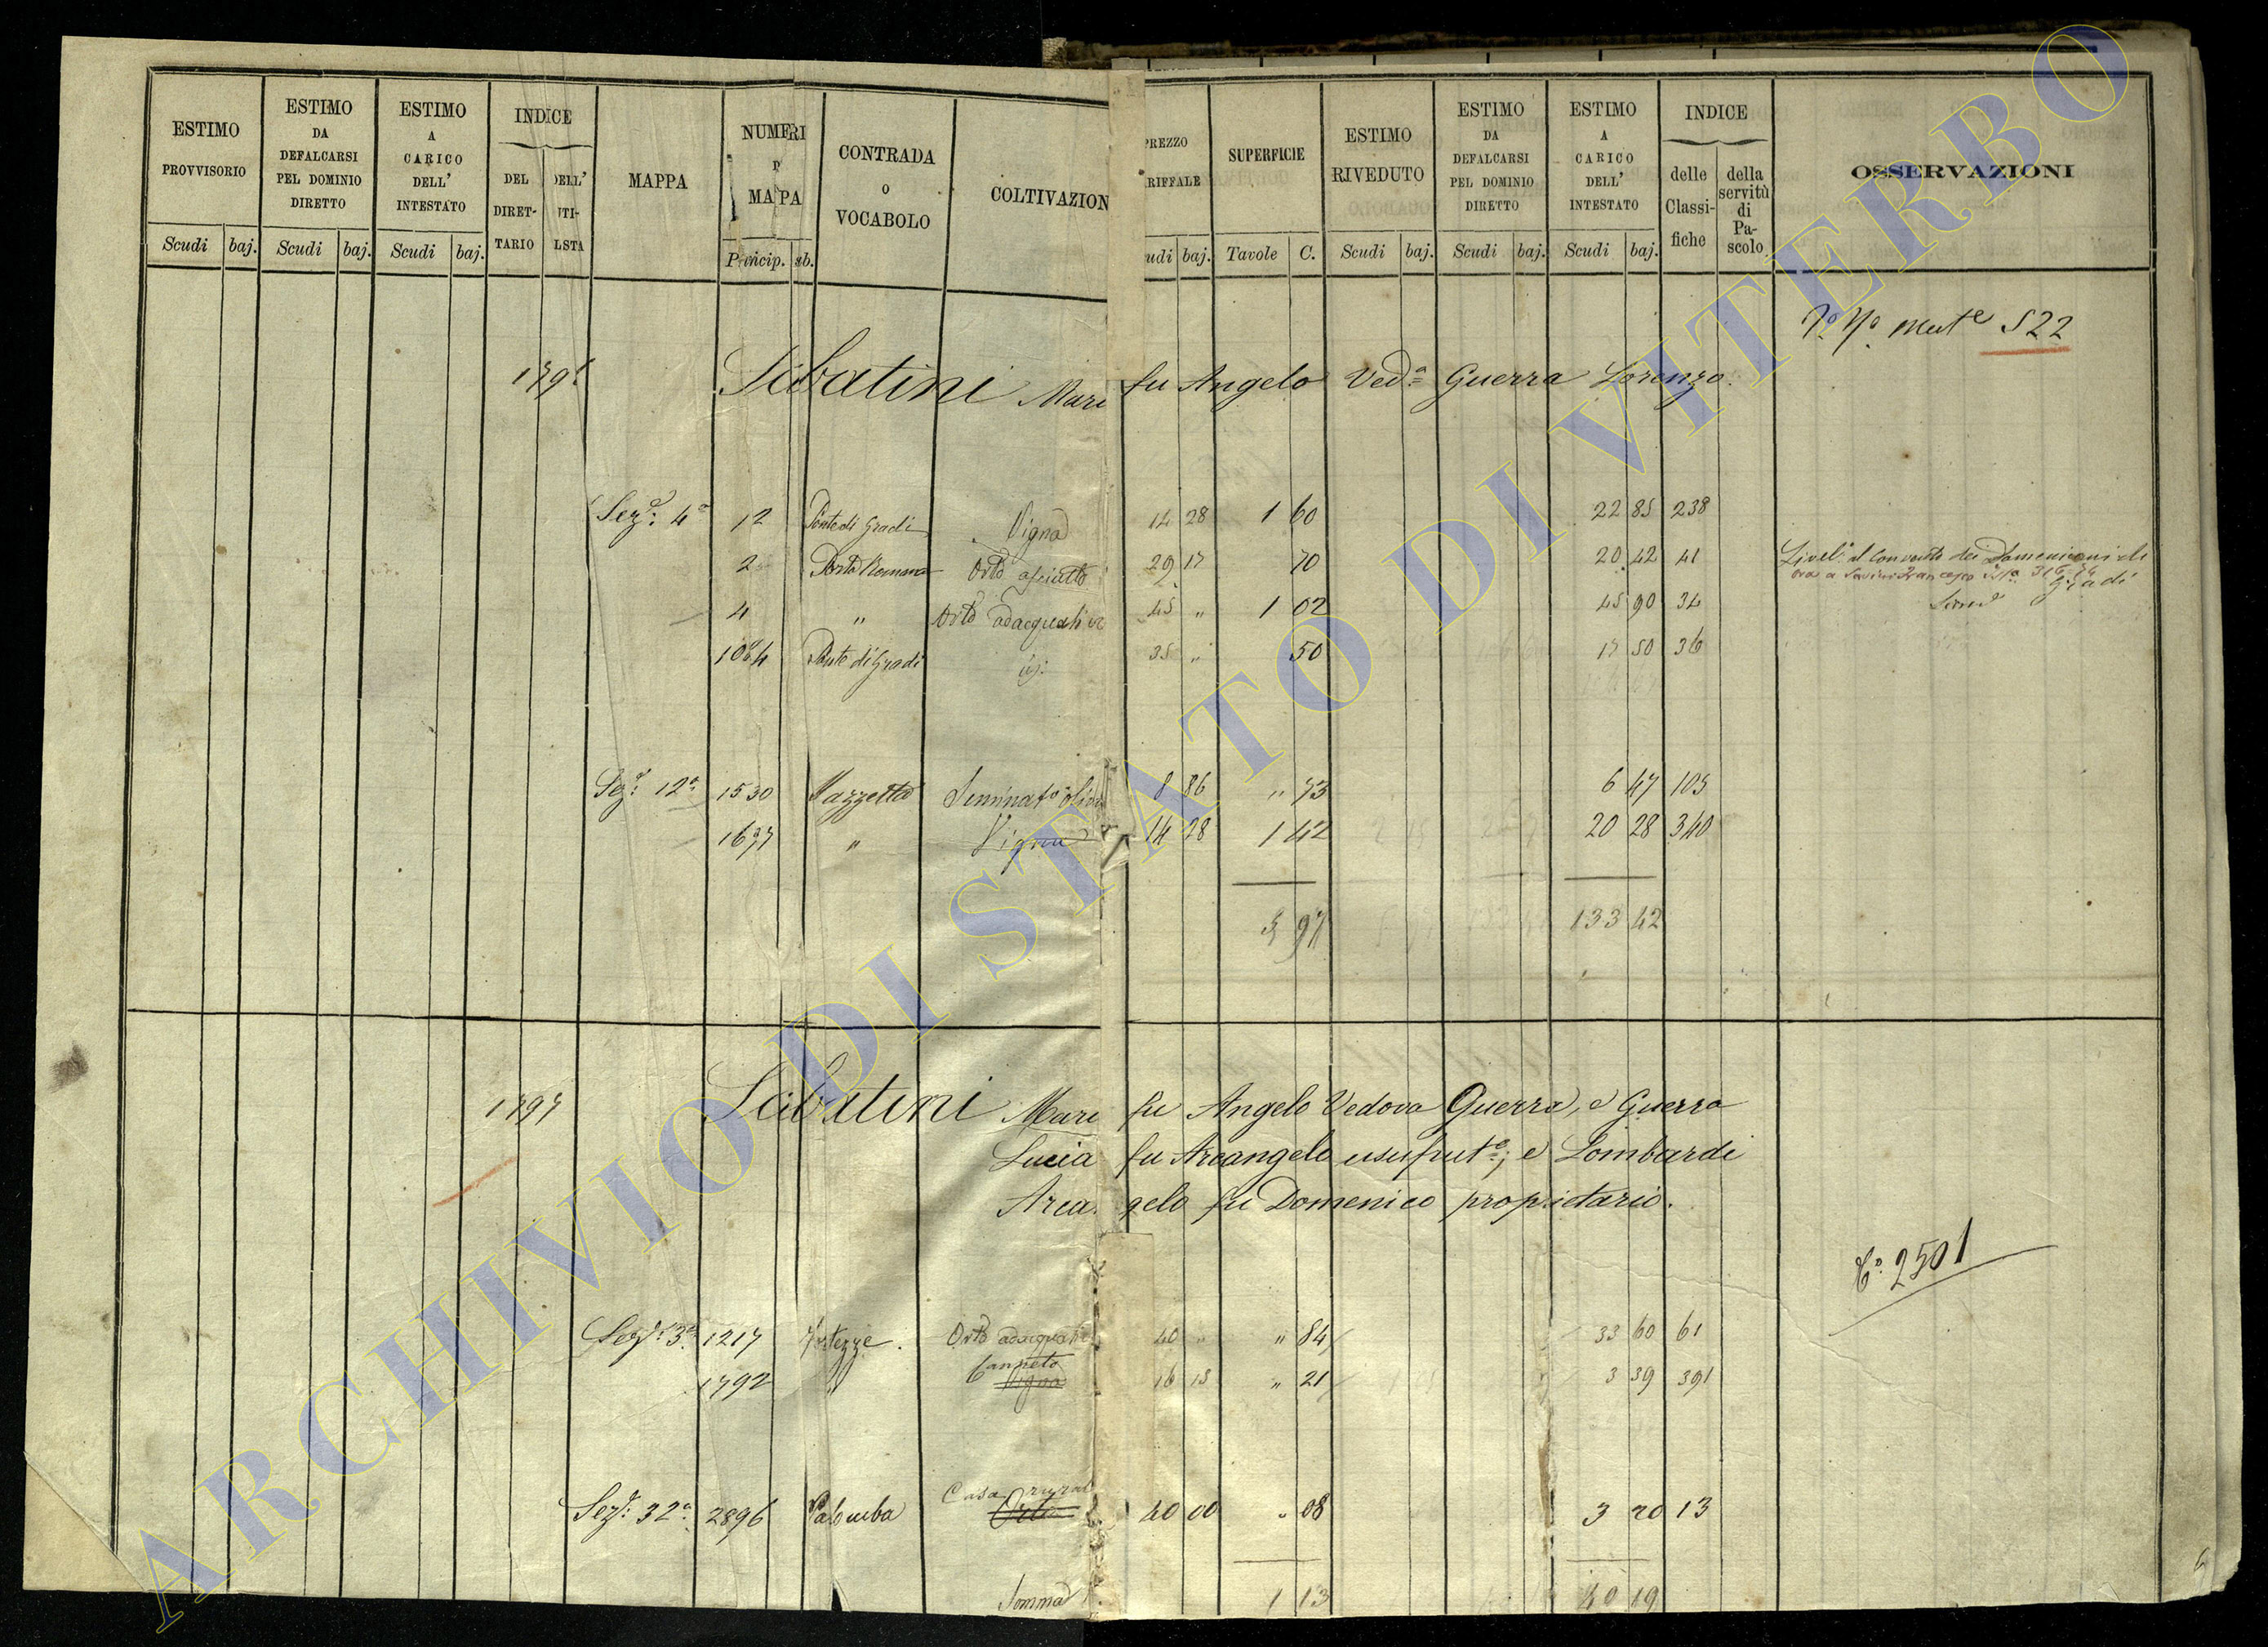 ESTIMO PROVVISORIO Scudi baj.
ESTIMO DA DEFALCARSI PEL DOMINIO DIRETTO Scudi baj.
ESTIMO A CARICO DELL' INTESTATO Scudi baj.
INDICE DEL DIRET- TARIO
MAPPA
NUMERI MAPPA
CONTRADA O VOCABOLO
COLTIVAZION
SUPERFICIE Tavole C.
ESTIMO RIVEDUTO Scudi baj.
ESTIMO DA DEFALCARSI PEL DOMINIO DIRETTO Scudi baj.
ESTIMO A CARICO DELL' INTESTATO Scudi baj.
INDICE delle Classi- fiche della servitù di Pa- scolo
OSSERVAZIONI
522
Sabatini Mari fu Angelo Ved.a Guerra Lorenzo.
Sez.e 4a 12 Ponte di Gradi Vigna 14 28 1 60 22 85 238
2 Porta Romana Orto asciutto 29 17 70 20 42 41
4 " Orto adacquativ 45 " 1 02 45 90 34
1084 Ponte di Gradi id: 35 " 50 17 50 36
Sez.e 12a 1530 Mazzetta Seminato oliv 8 86 " 73 6 47 105
1637 " Vigna 14 28 1 42 20 28 340
5 97 133 42
1797
Sabatini Mari fu Angelo Vedova Guerra, e Guerra
Lucia fu Arcangelo usufrut.e; e Lombardi
Arca gelo fu Domenico proprietario.
2501
Sez.e 3a 1217 Orto adacquativ 40 " " 84 33 60 61
1792 " Canneto Vigna 16 15 " 21 3 39 391
Sez.e 32a 2896 Palomba Casa rural Orto 40 00 " 08 3 20 13
Somma 1 13 40 19
ARCHIVIO DI STATO DI VITERBO